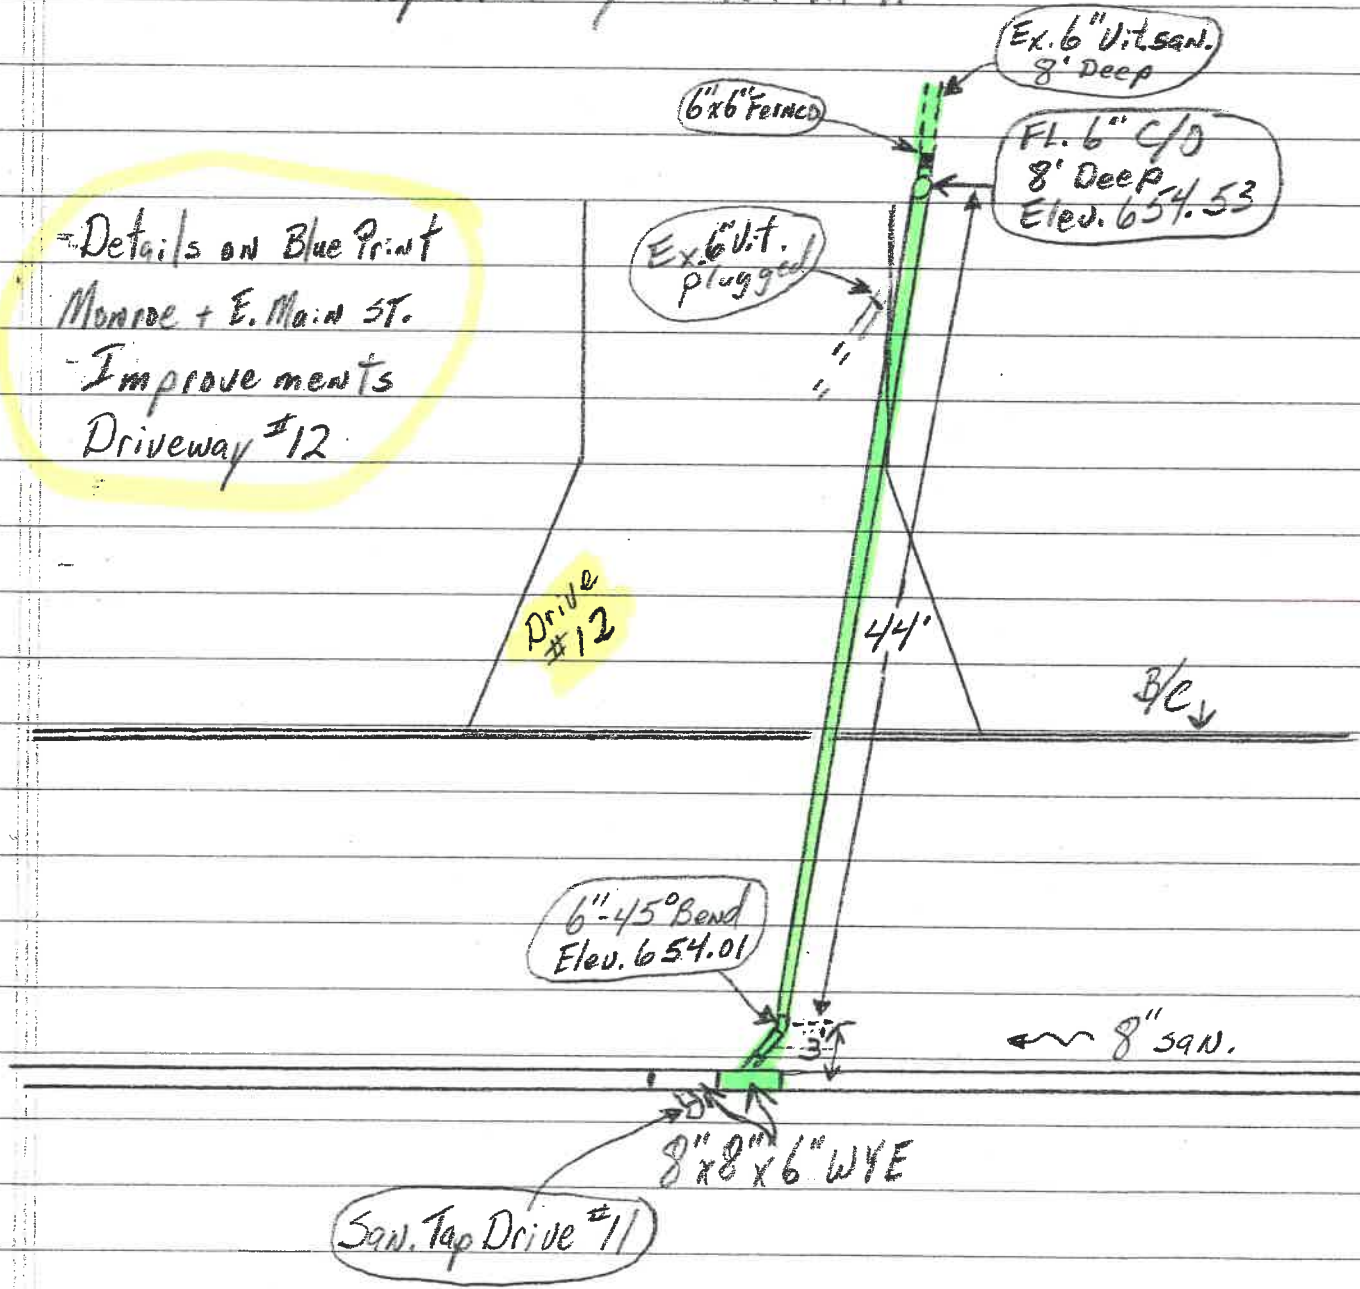 Ex. 6" Vit san.
8' Deep
6"x6" Fernco
FL. 6" C/O
8' Deep
Elev. 654.53
- Details on Blue Print
Monroe + E. Main ST.
- Improvements
Driveway #12
Ex. 6" Vit.
plugged
Drive
#12
44'
B/C
6"-45° Bend
Elev. 654.01
3'
8" san.
8"x8"x6" WYE
San. Tap Drive #11